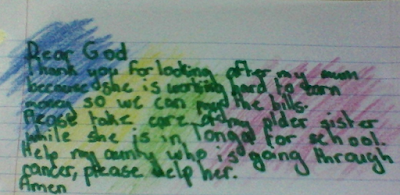 Dear God
Thank you for looking after my mum
because she is working hard to earn
money so we can the bills.
Please take care of my older sister
while she is in for school.
Help my aunty who is going through
cancer, please help her.
Amen